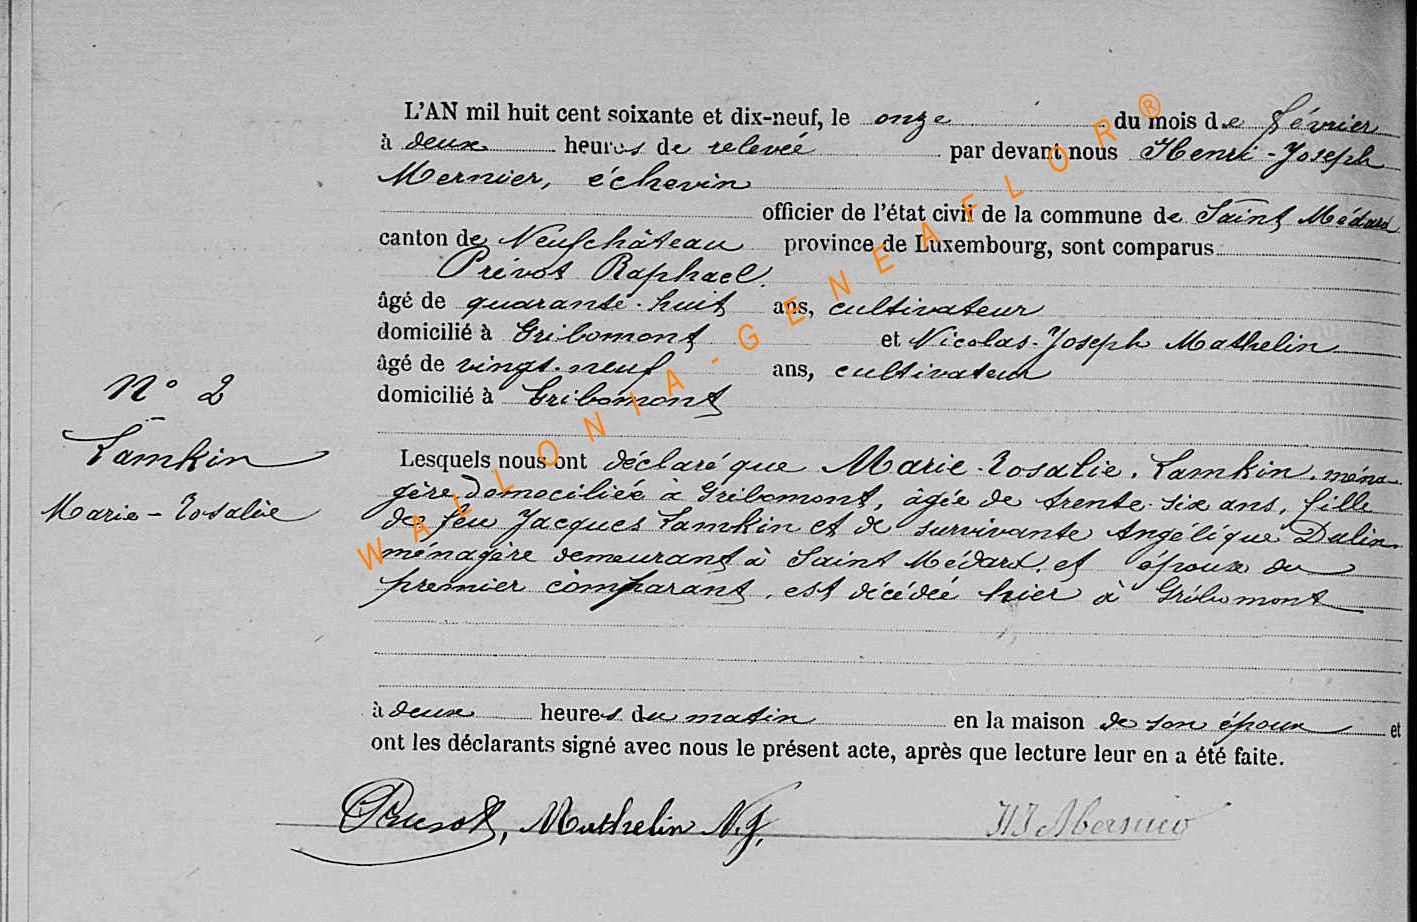 L'AN mil huit cent soixante et dix-neuf, le onze du mois de février
à deux heures de relevée par devant nous Henri-Joseph
Mernier, échevin
officier de l'état civil de la commune de Saint Médard
canton de Neufchâteau province de Luxembourg, sont comparus
Prévot Raphael.
âgé de quarante-huit ans, cultivateur
domicilié à Gribomont et Nicolas-Joseph Mathelin
âgé de vingt-neuf ans, cultivateur
domicilié à Gribomont
N° 2
Lamkin
Marie-Rosalie
Lesquels nous ont déclaré que Marie-Rosalie Lamkin, ména-
gère domiciliée à Gribomont, âgée de trente-six ans, fille
de feu Jacques Lamkin et de survivante Angélique Dulin
ménagère demeurant à Saint Médard, et épouse du
premier comparant, est décédée hier à Gribomont
à deux heures du matin en la maison de son époux et
ont les déclarants signé avec nous le présent acte, après que lecture leur en a été faite.
Prevot, Mathelin N.J. HJ Mernier
WALLONIA-GENEAFLOR®